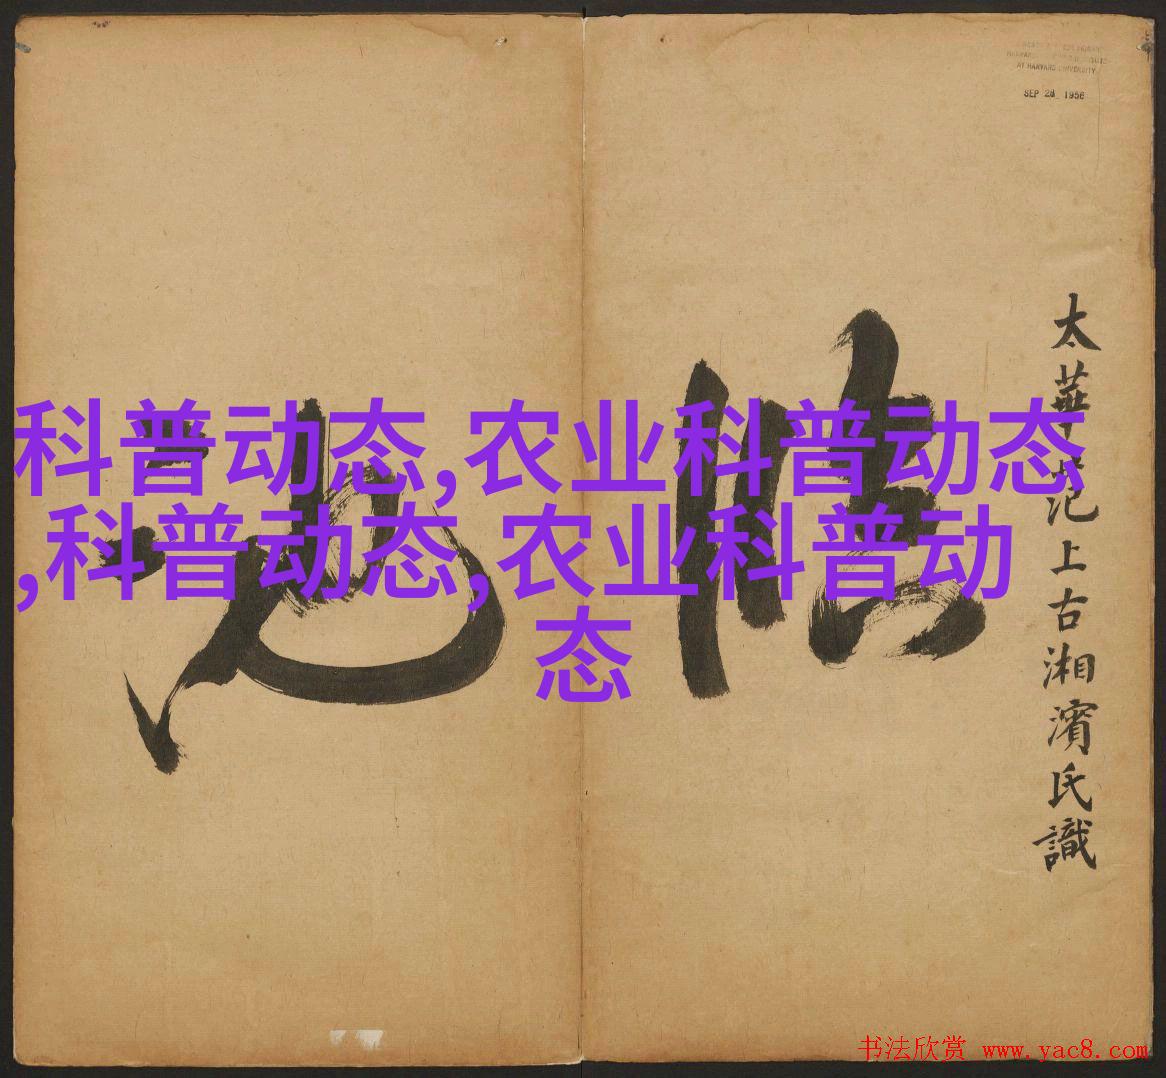 SEP 28 1956
AT HARVARD UNIVERSITY
科普动态,农业科普动态
,科普动态,农业科普动
态
太華
上古湘濱氏識
书法欣赏 www.yac8.com